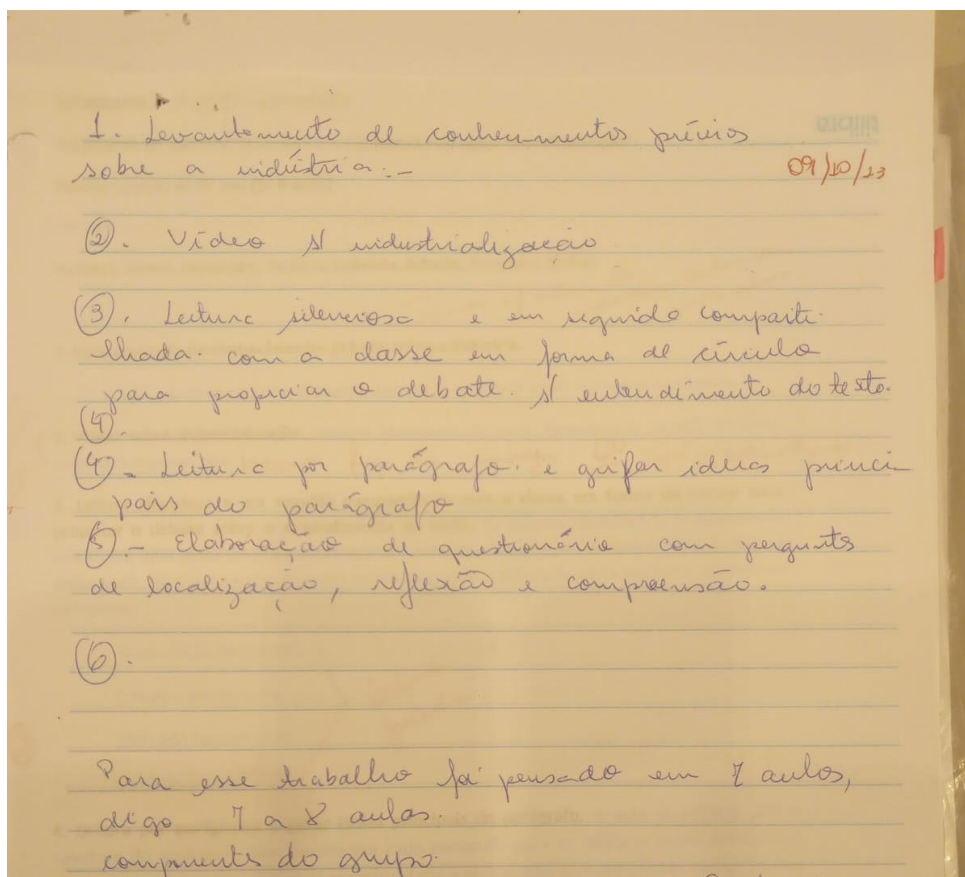 1. Levantamento de conhecimentos prévios
sobre a indústria:-
09/10/13
②. Vídeo s/ industrialização
③. Leitura silenciosa e em seguida comparti-
lhada. com a classe em forma de círculo
para propiciar o debate. s/ entendimento do texto.
④.
④- Leitura por parágrafo. e grifar ideias princi-
pais do parágrafo
⑤.- Elaboração de questionário com perguntas
de localização, reflexão e compreensão.
⑥.
Para esse trabalho foi pensado em 7 aulas,
digo 7 a 8 aulas.
componentes do grupo.